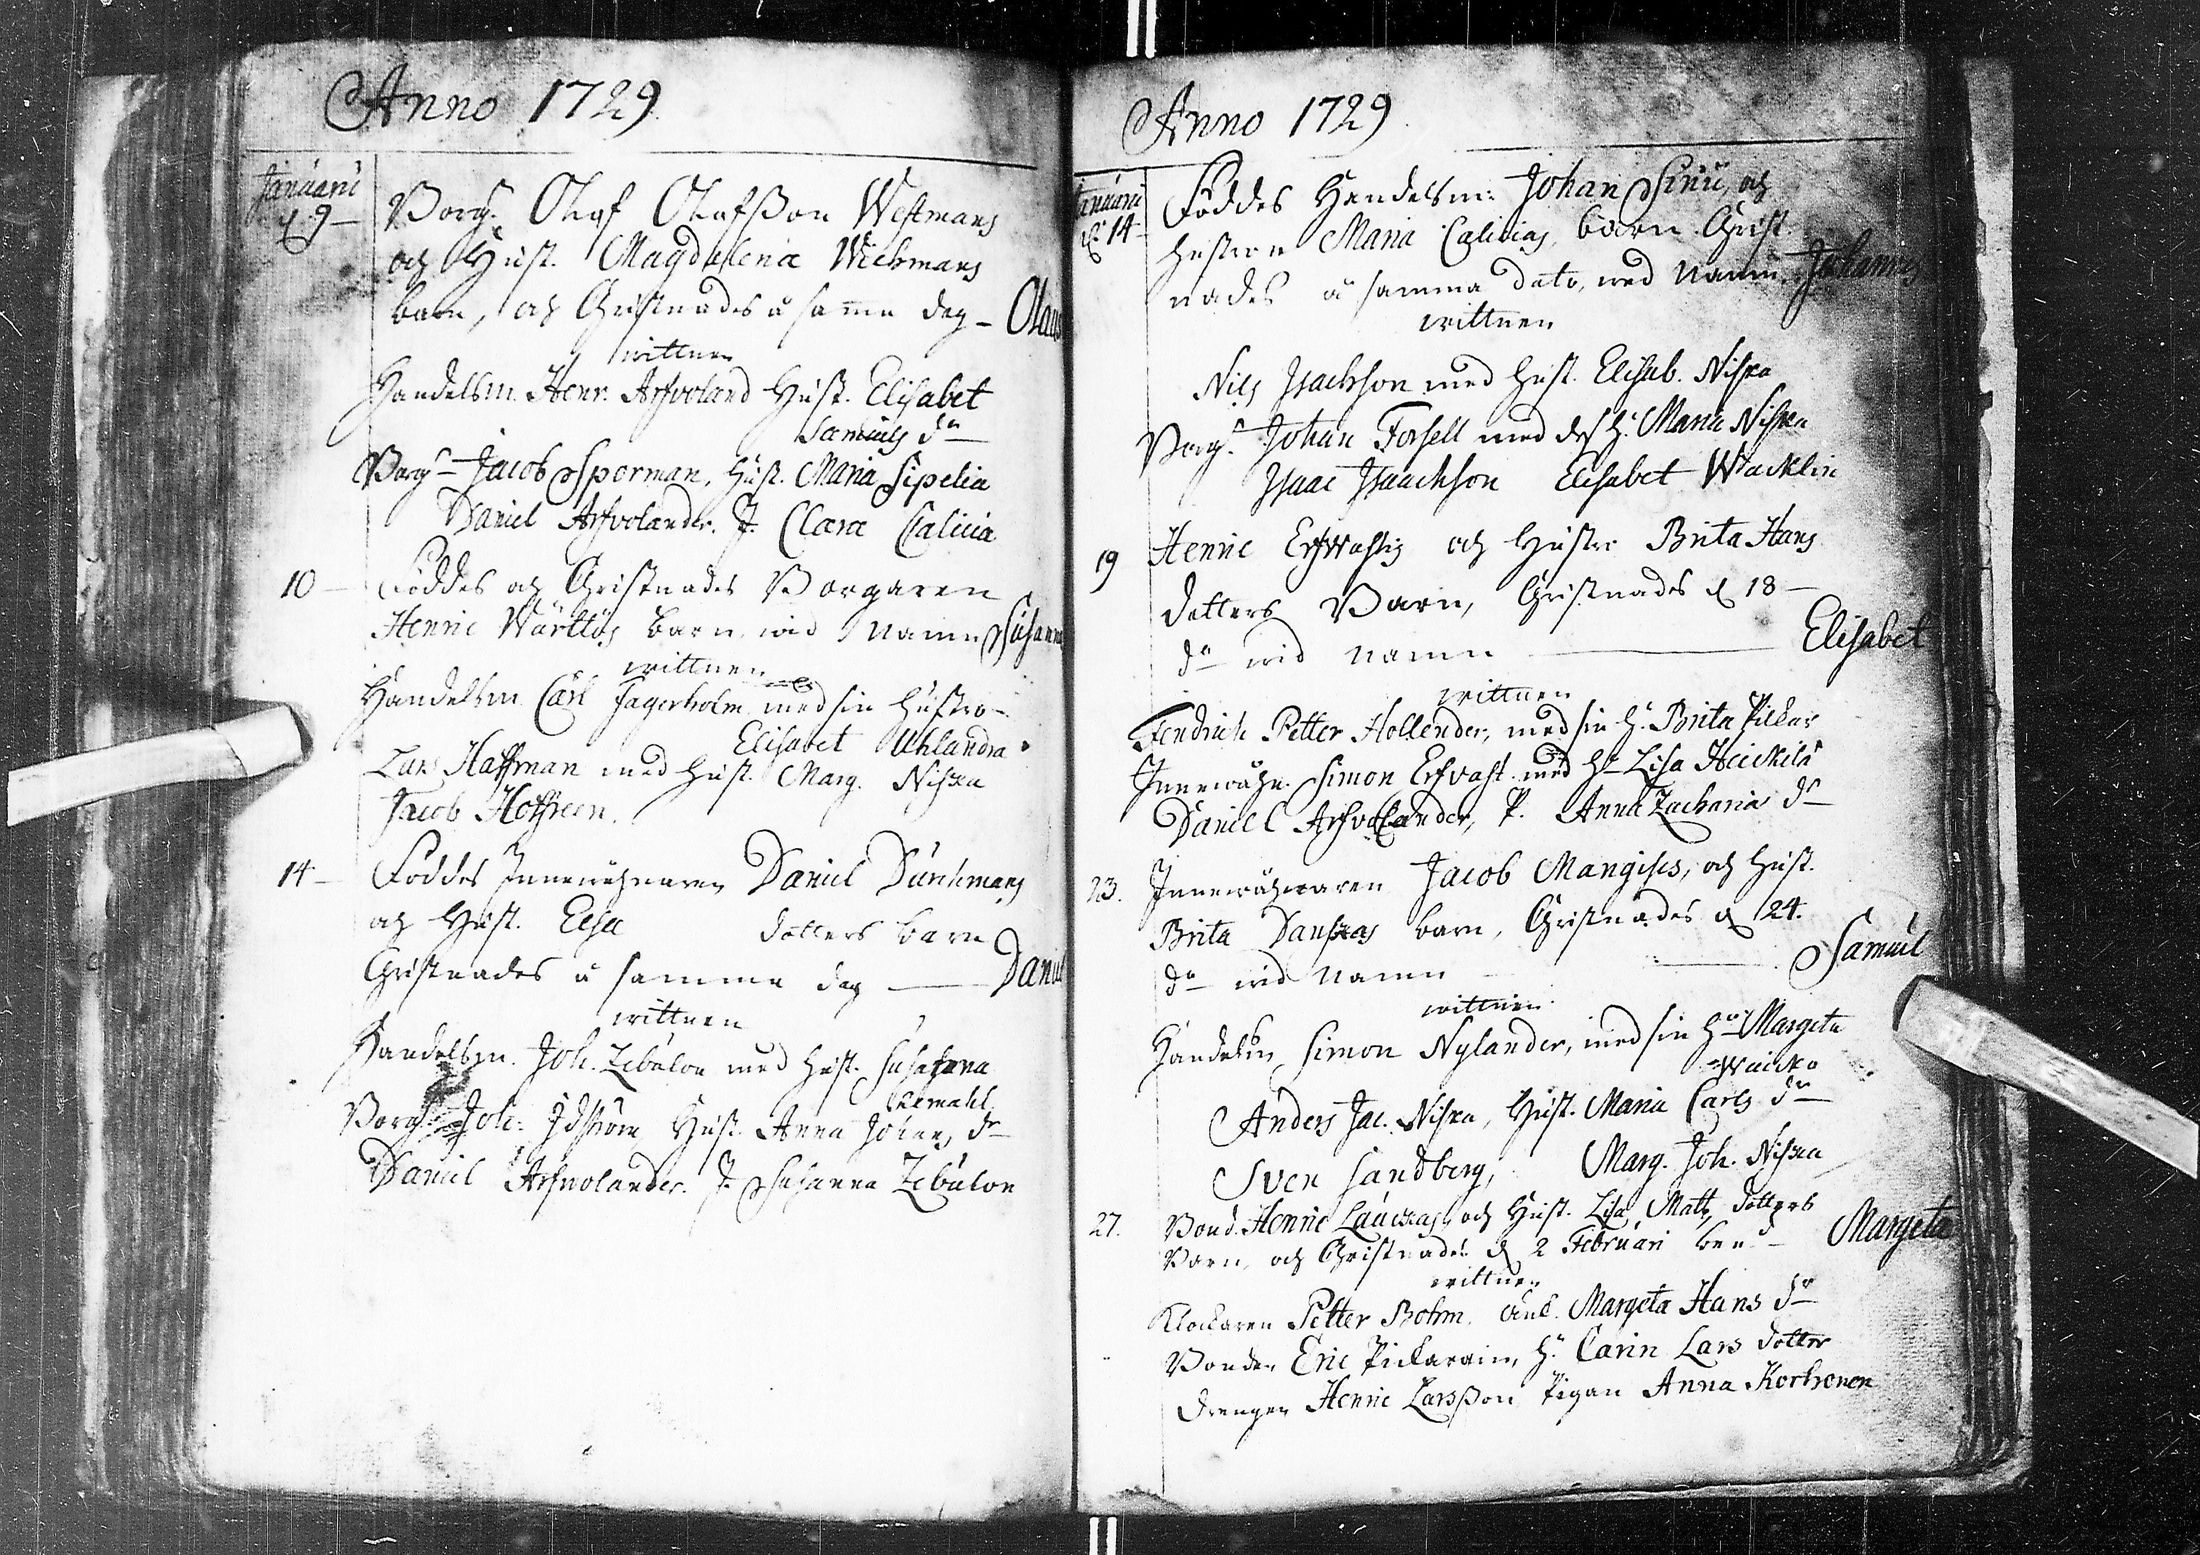 Anno 1729
Januarii
d. 9 —
Borg. Olof Olofsson Westmans
och Hust. Magdalena Wichmans
barn, och Christnades a samma dag — Olaus
wittnen
Handelsm. Henr. Arfvoland Hust. Elisabet
Samuels dr
Borg. Jacob Sporman, Hust. Maria Sipelia
Daniel Arfvolander. P. Clara Calicia
10 — Föddes och Christnades Borgaren
Henric Wärttös barn wid Namn Susanna
wittnen
Handelsm Carl Fagerholm med sin hustro
Elisabet Uhlandra
Lars Haffman med Hust. Marg. Niska
Jacob Hoffreen.
14 — Föddes Innewåhnaren Daniel Durchmans
och Hust. Elsa dotters barn
Christnades a samma dag — Daniel
wittnen
Handelsm. Joh. Zebulon med Hust. Susanna
Remahl
Borg. Joh: Idström Hust. Anna Johans dr
Daniel Arfvolander. P. Susanna Zebulon
Anno 1729.
Januarii
d. 14
Föddes Handelsm: Johan och
hustru Maria Calicias, barn Christ-
nades a samma dato, wed Namn Johannes
wittnen
Nils Isachson med Hust. Elisab. Niska
Borg. Johan Forsell med dess H. Maria Niska
Isaac Isaachson Elisabet Wacklin
19 Henric Erfwastis och Hustro Brita Hans
dotters Barn, Christnades d 18 —
do wid Namn — Elisabet
wittnen
Fendrich Petter Hollender, med sin H. Brita Pilkar
Innewåhn. Simon Erfvast. med H. Lisa Heickilä
Daniel Arfvolander, P. Anna Zacharias dr
23. Innewåhnaren Jacob Mangises, och Hust.
Brita Danskas barn, Christnades d 24.
do wid Namn — Samuel
wittnen
Handelsm Simon Nylander, med sin Hu Margeta
Waicko
Anders Jac. Niska, Hust. Maria Carls dr
Sven Sandberg, Marg. Joh. Niska
27. Bond. Henric Lauckas, och Hust. Lisa Matts dotters
Barn, och Christnades d 2 Februari Margeta
wittnen
Klockaren Petter Bohm. Margeta Hans dr
Bonden Eric Pickarain, H. Carin Lars dotter
Drengen Henric Larsson Pigan Anna Korhonen